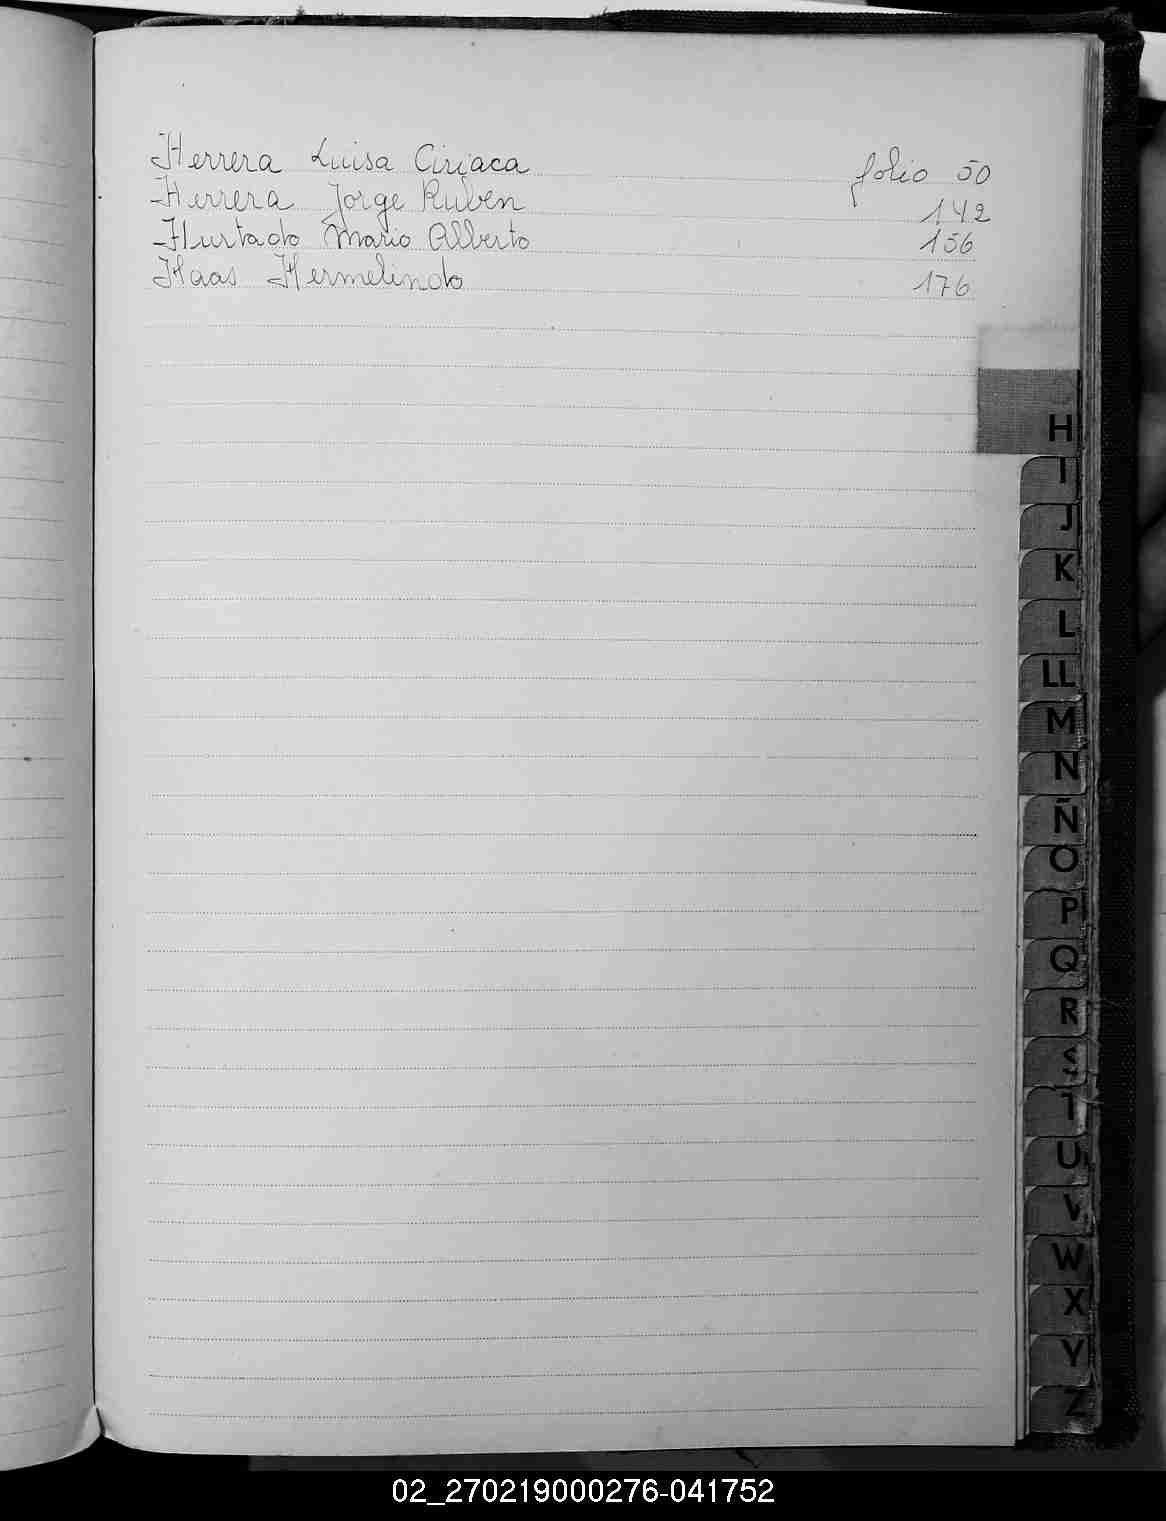 Herrera Luisa Ciriaca folio 50
Herrera Jorge Ruben 142
Hurtado Mario Alberto 156
Haas Hermelindo 176
H
I
J
K
L
LL
M
N
Ñ
O
P
Q
R
S
T
U
V
W
X
Y
Z
02_270219000276-041752